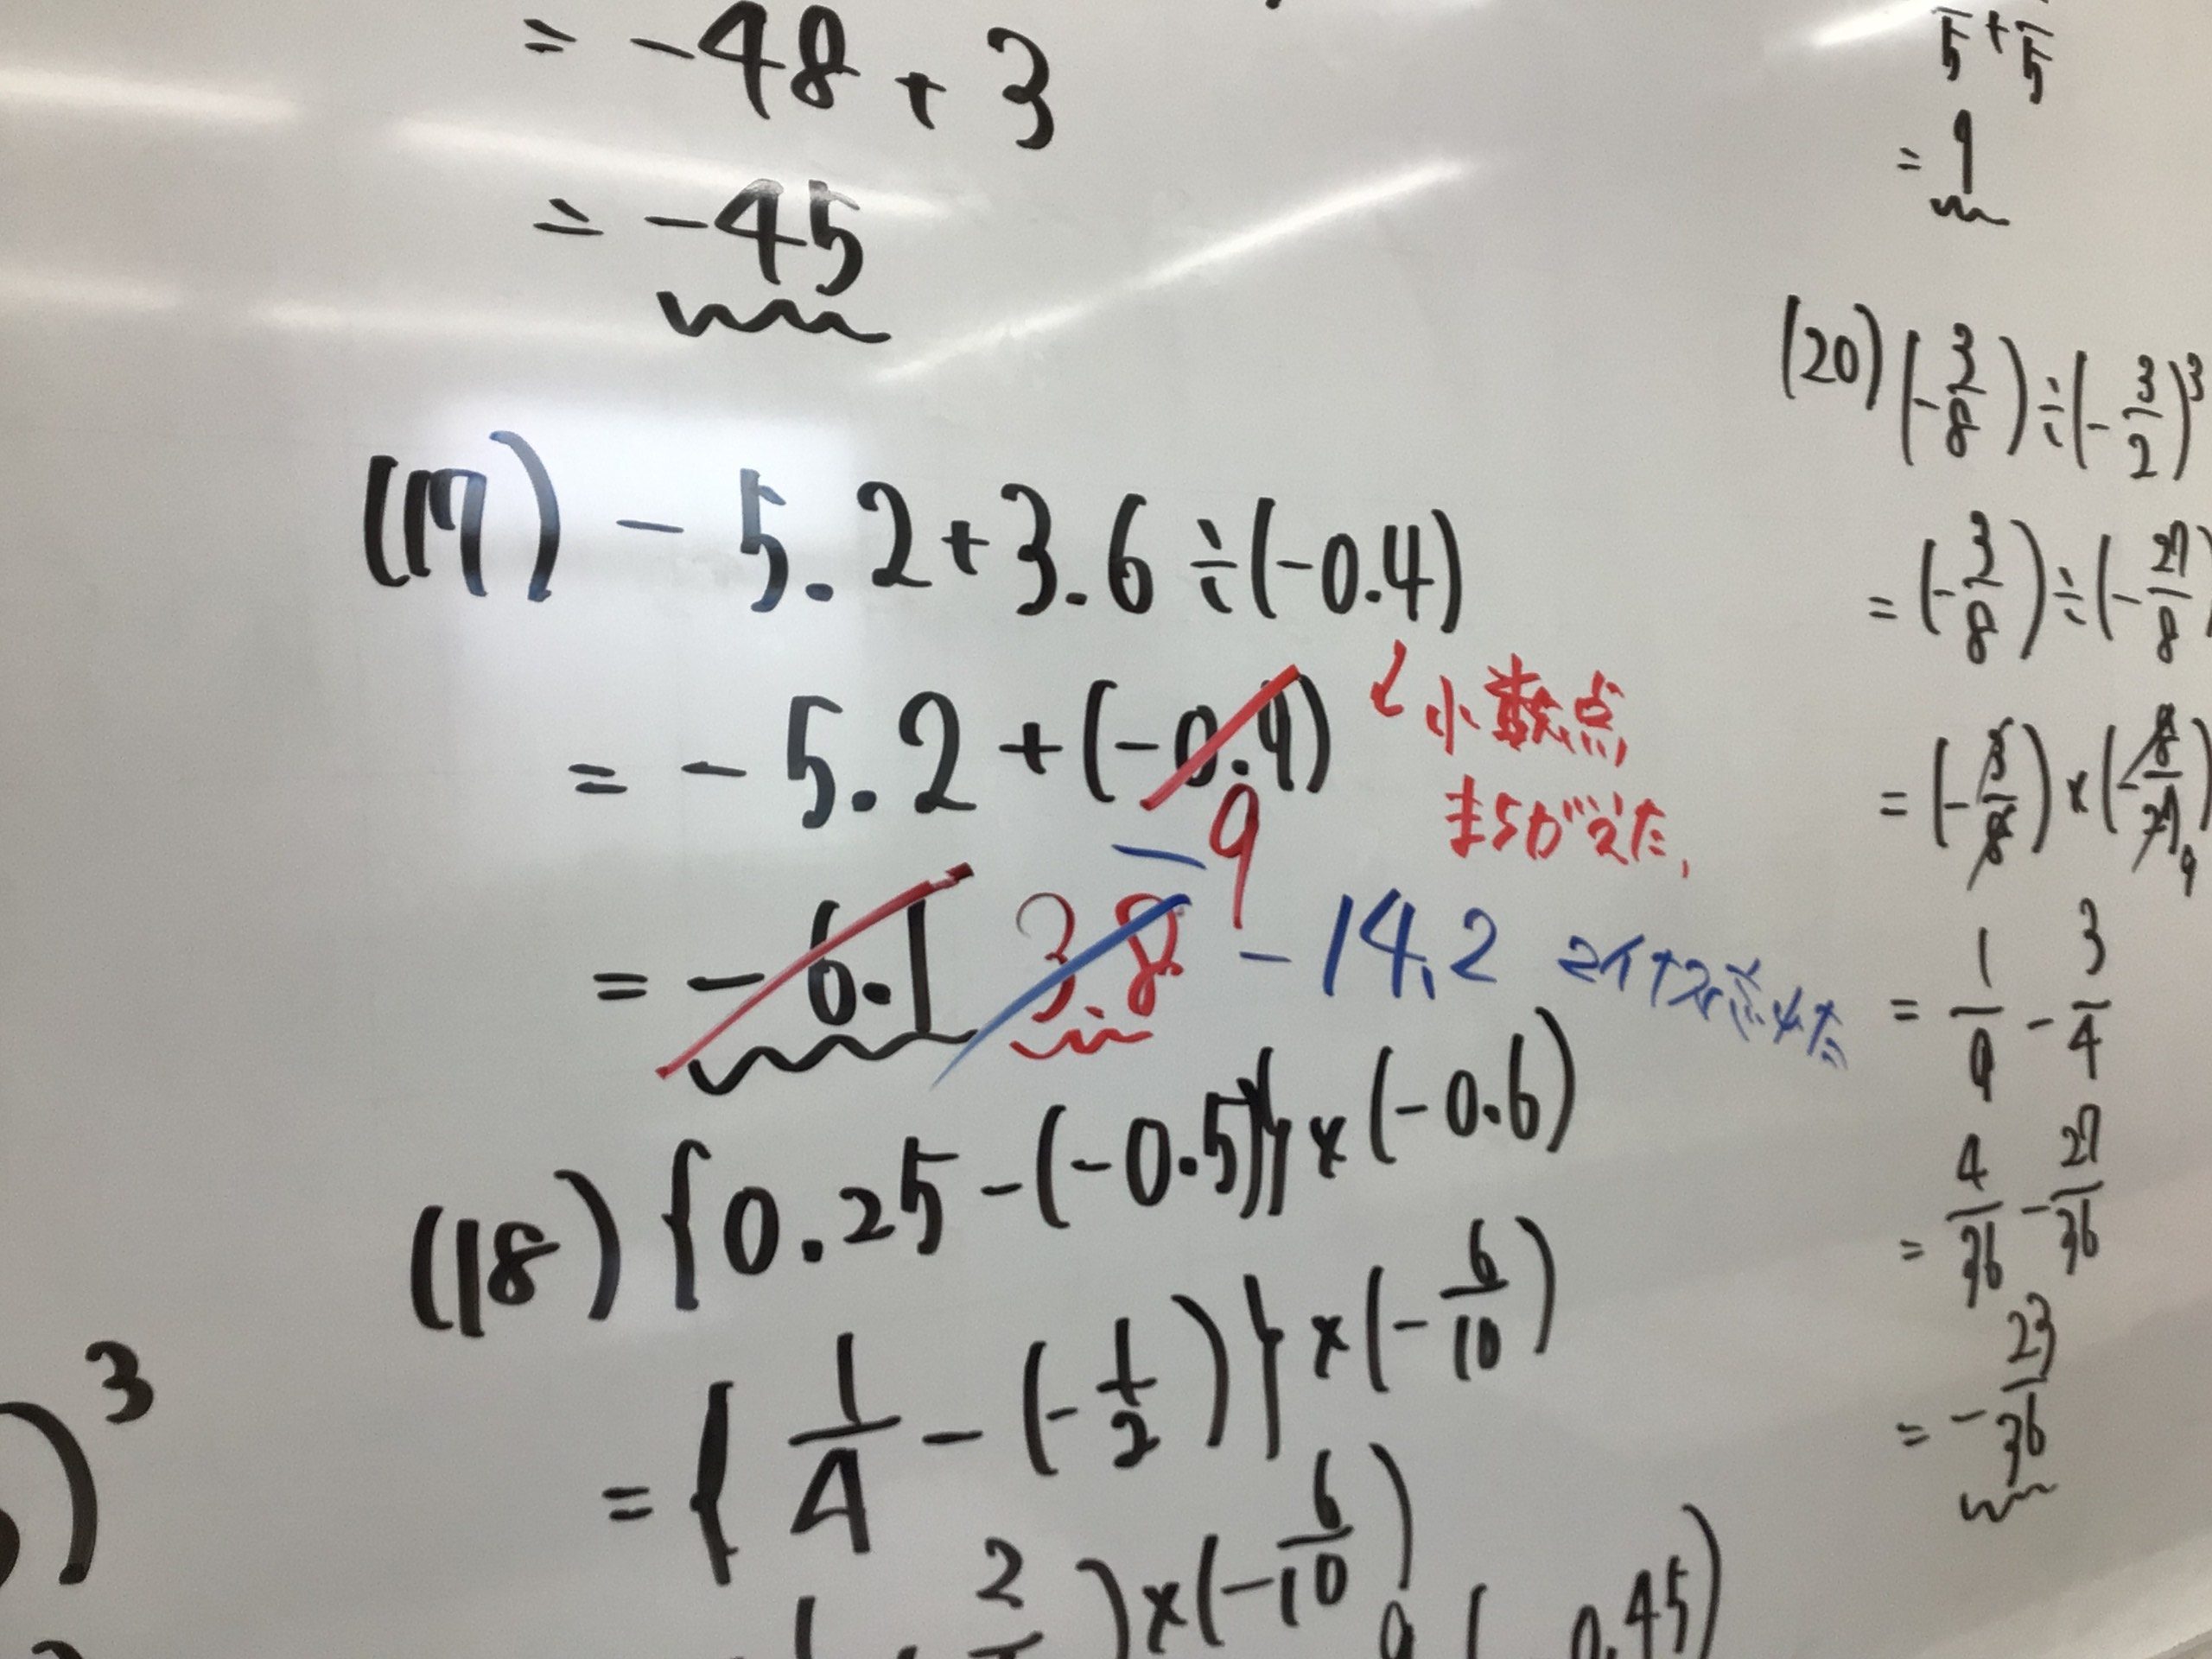 = -48 + 3
= -45
(17) - 5.2+3.6÷(-0.4)
= - 5.2 +(-0.9)
小数点
まちがえた
9
= -6.1 3.8 -14.2
(18) {0.25-(-0.5)}×(-0.6)
= {1/4 - (-1/2)}×(-6/10)
)×(-6/10)
0.45)
)³
5 + 5
= 1
(20) (-3/8)÷(-3/2)³
= (-3/8)÷(-27/8)
= (-3/8)×(-8/27)
9
= 1/9 - 3/4
= 4/36 - 27/36
= -23/36